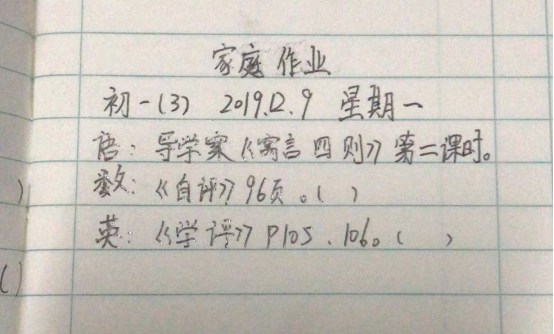 家庭作业
初一(3) 2019.12.9 星期一
语：导学案《寓言四则》第二课时。
数：《自评》96页。( )
英：《学评》P105、106。( )
)
()